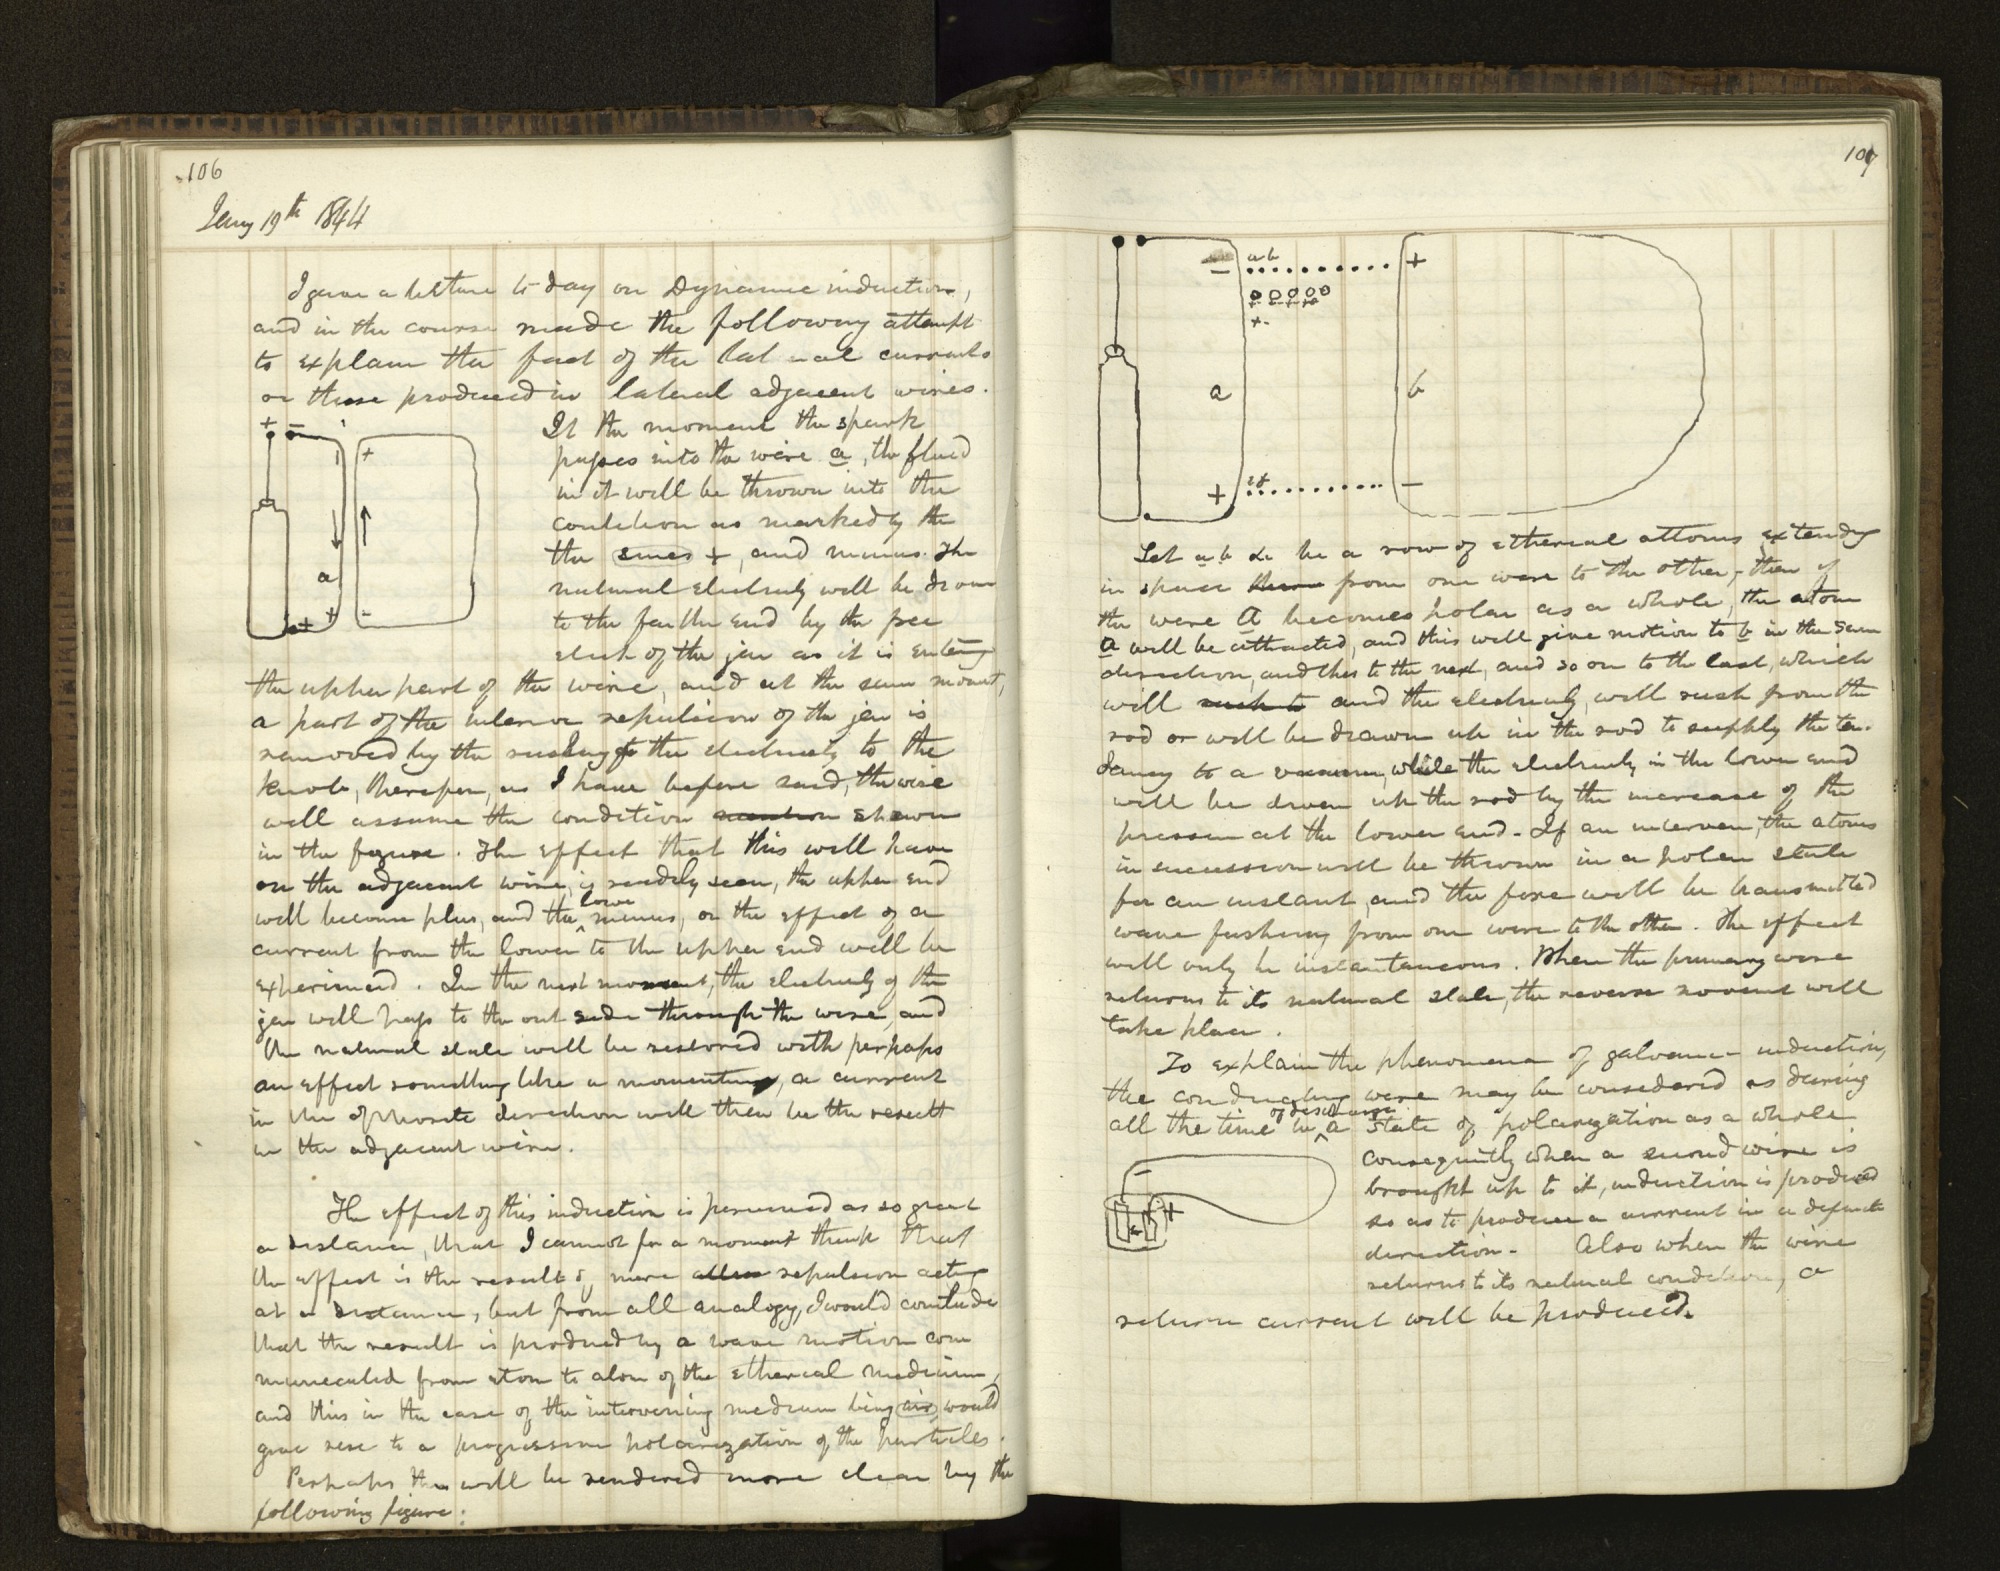 106
Jany 19th 1844
I gave a lecture to-day on Dynamic induction,
and in the course made the following attempt
to explain the fact of the lateral currents
or those produced in lateral adjacent wires.
At the moment the spark
passes into the wire a, the fluid
in it will be thrown into the
condition as marked by the
the signes +, and minus. The
natural electricity will be drawn
to the farther end by the free
elect of the jar as it is entering
the upper part of the wire, and at the same moment,
a part of the exterior repulsion of the jar is
removed by the rushing of the electricity to the
knob, therefore, as I have before said, the wire
will assume the condition shown
in the figure. The effect that this will have
on the adjacent wire, is readily seen, the upper end
will become plus, and the lower minus, or the effect of a
current from the lower to the upper end will be
experienced. In the next moment, the electricity of the
jar will pass to the out side through the wire, and
the natural state will be restored with perhaps
an effect something like a momentum, a current
in the opposite direction will then be the result
in the adjacent wire.
The effect of this induction is perceived as so great
a distance, that I cannot for a moment think that
the effect is the result of mere repulsion acting
at a distance, but from all analogy, I would conclude
that the result is produced by a wave motion com
municated from atom to atom of the ethereal medium,
and this in the case of the intervening medium being air, would
give rise to a progressive polarization of the particles.
Perhaps this will be rendered more clear by the
following figure:
+ −
+
a
+ +
−
107
− a b +
+ −
a b
+ −
Let a b &c be a row of ethereal attoms extending
in space from one wire to the other, then if
the wire A becomes polar as a whole, the atom
a will be attracted, and this will give motion to b in the same
direction, and this to the next, and so on to the last, which
will and the electricity will rush from the
rod or will be drawn up in the rod to supply the ten-
dancy to a vacuum, while the electricity in the lower end
will be driven up the rod by the increase of the
pressure at the lower end - If air intervene, the atoms
in succession will be thrown in a polar state
for an instant, and the force will be transmitted
wave fashion, from one wire to the other. The effect
will only be instantaneous. When the primary wire
returns to its natural state, the reverse movement will
take place.
To explain the phenomena of galvanic induction,
the conducting wire may be considered as during
all the time of discharge in a state of polarization as a whole
consequently when a second wire is
brought up to it, induction is produced
so as to produce a current in a definite
direction - Also when the wire
returns to its natural condition, a
return current will be produced.
− +